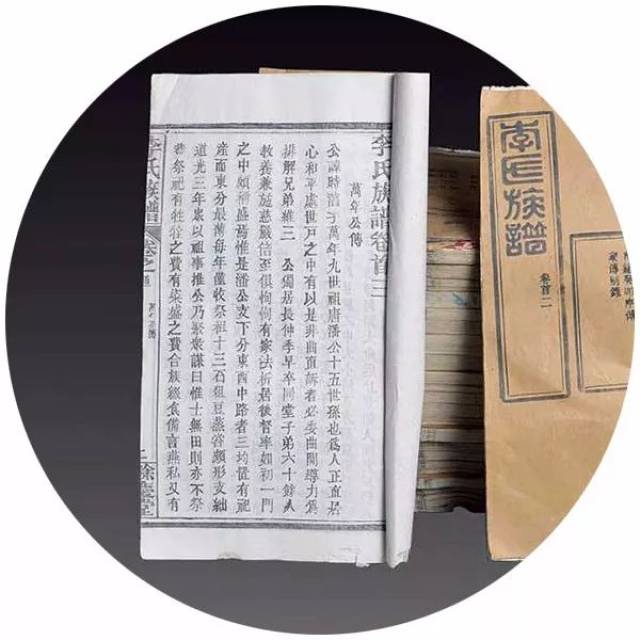 李氏族譜卷首三
萬年公傳
公諱時清字萬年九世祖唐潘公十五世孫也為人正直居
心和平處世戶之中有以是非曲直訴者必委曲開導力為
排解兄弟維三　公獨居長仲季早卒同堂子弟六十餘人
教養兼施慈嚴倍至俱恂恂有家法析居後督率如初一門
之中頗稱盛焉惟是潘公支下分東西中路者三均置有祀
產而東分最薄每年僅收祭租十三石俎豆蒸嘗頗形支絀
道光三年歲以祖事推公乃聚眾謀曰惟士無田則亦不祭
祭祀有牲牷之費有粢盛之費合族綴食備言燕私又有
李氏族譜
卷之首
二
餘慶堂
李氏族譜
卷首二
家傳別錄